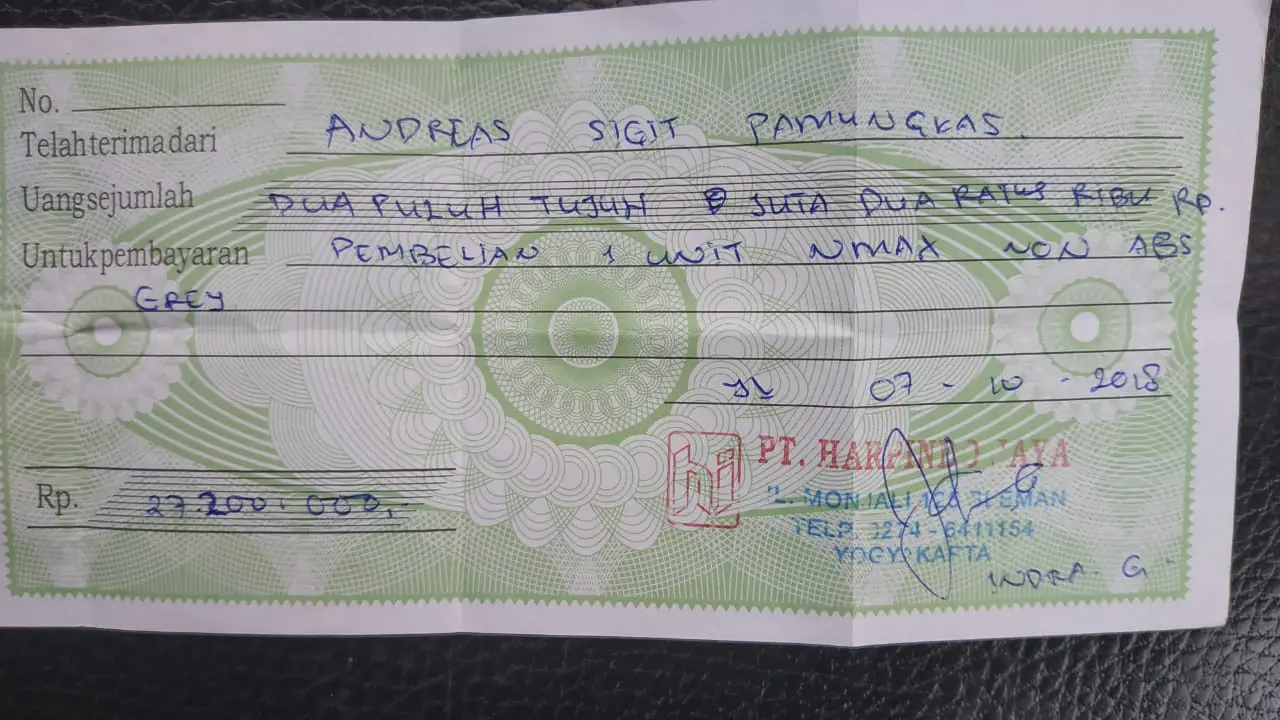 No.
Telah terima dari ANDREAS SIGIT PAMUNGKAS.
Uang sejumlah DUA PULUH TUJUH JUTA DUA RATUS RIBU RP.
Untuk pembayaran PEMBELIAN 1 UNIT NMAX NON ABS
GREY
07 - 10 - 2018
PT. HARPINDO JAYA
JL. MONJALI SLEMAN
Rp. 27.200.000,-
TELP. 0274 - 6411154
YOGYAKARTA
INDRA. G.